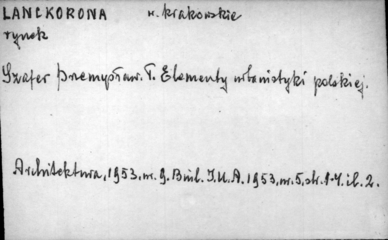 LANCKORONA w. krakowskie
rynek
Szafer Przemysław. T. Elementy urbanistyki polskiej.
Architektura, 1953, nr. 9. Biul. I.U.A. 1953, nr. 5, str. 1-4. il. 2.